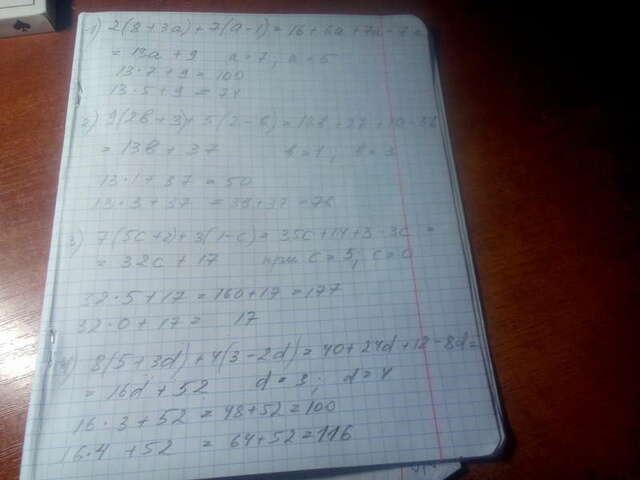 1) 2(8+3a)+7(a-1)=16+6a+7a-7=
= 13a+9 a=7; a=5
13·7+9=100
13·5+9=74
2) 9(2b+3)+5(2-b)=18b+27+10-5b
= 13b+37 b=1; b=3
13·1+37=50
13·3+37=39+37=76
3) 7(5c+2)+3(1-c)=35c+14+3-3c=
= 32c+17 при c=5, c=0
32·5+17=160+17=177
32·0+17= 17
4) 8(5+3d)+4(3-2d)=40+24d+12-8d=
= 16d+52 d=3; d=4
16·3+52=48+52=100
16·4+52 = 64+52=116